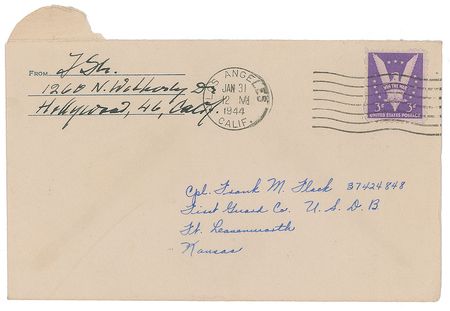 FROM
1260 N. Wetherly Dr.
Hollywood, 46, Calif.
LOS ANGELES
JAN 31
12 M
1944
CALIF.
WIN THE WAR
3¢ 3¢
UNITED STATES POSTAGE
Cpl. Frank M. Flack 37424848
First Guard Co. U.S.D.B
Ft. Leavenworth
Kansas